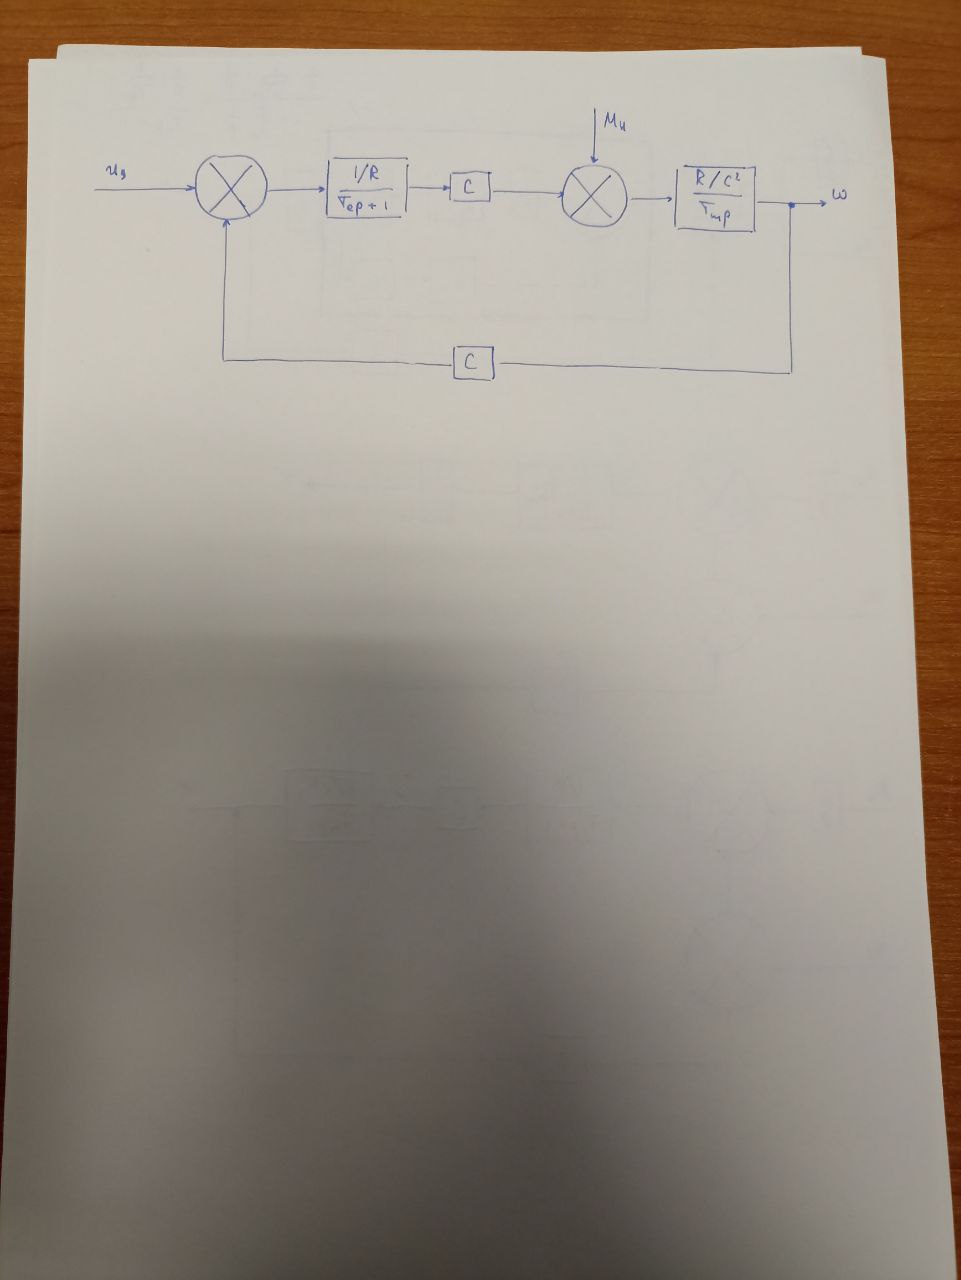 uя
1/R
Tэp+1
C
Mн
R/C²
Tмp
ω
C